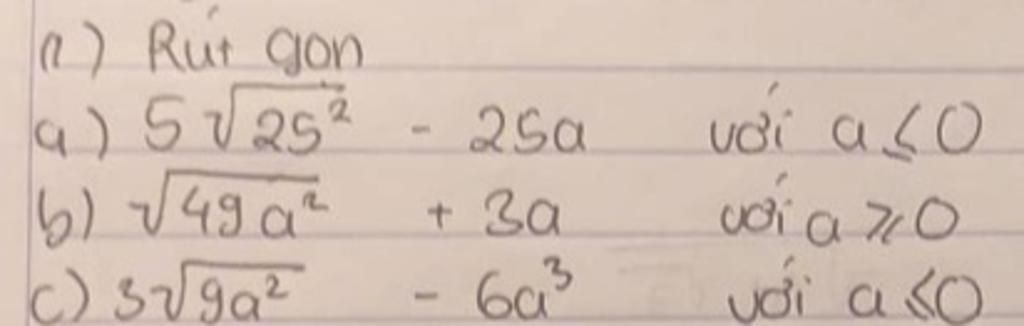 1) Rút gon
a) 5√25² - 25a với a ≤ 0
b) √49a² + 3a với a ≥ 0
c) 3√9a² - 6a³ với a ≤ 0